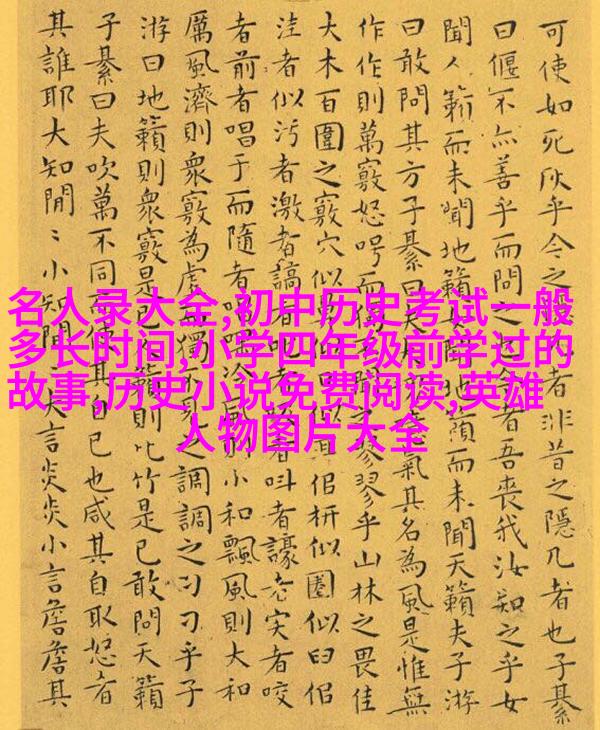 名人录大全,初中历史考试一般
多长时间,小学四年级前学过的
故事,历史小说免费阅读,英雄
人物图片大全
可使如死灰乎今之者非昔之隱几者也子綦
曰偃不亦善乎而問之也者吾喪我汝知之乎女
聞人籟而未聞地籟地籟而未聞天籟夫子游
曰敢問其方子綦曰氣其名為風是惟無
作作則萬竅怒呺而翏乎山林之畏佳
大木百圍之竅穴似似枅似圈似臼似
洼者似污者激者謞者叫者譹者宎者咬
者前者唱于而隨者風小和飄風則大和
厲風濟則衆竅為虛之調調之刁刁乎子
游曰地籟則衆竅是已籟則比竹是已敢問天籟
子綦曰夫吹萬不同使其自已也咸其自取怒者
其誰耶大知閒〻小知閒〻大言炎炎小言詹詹其